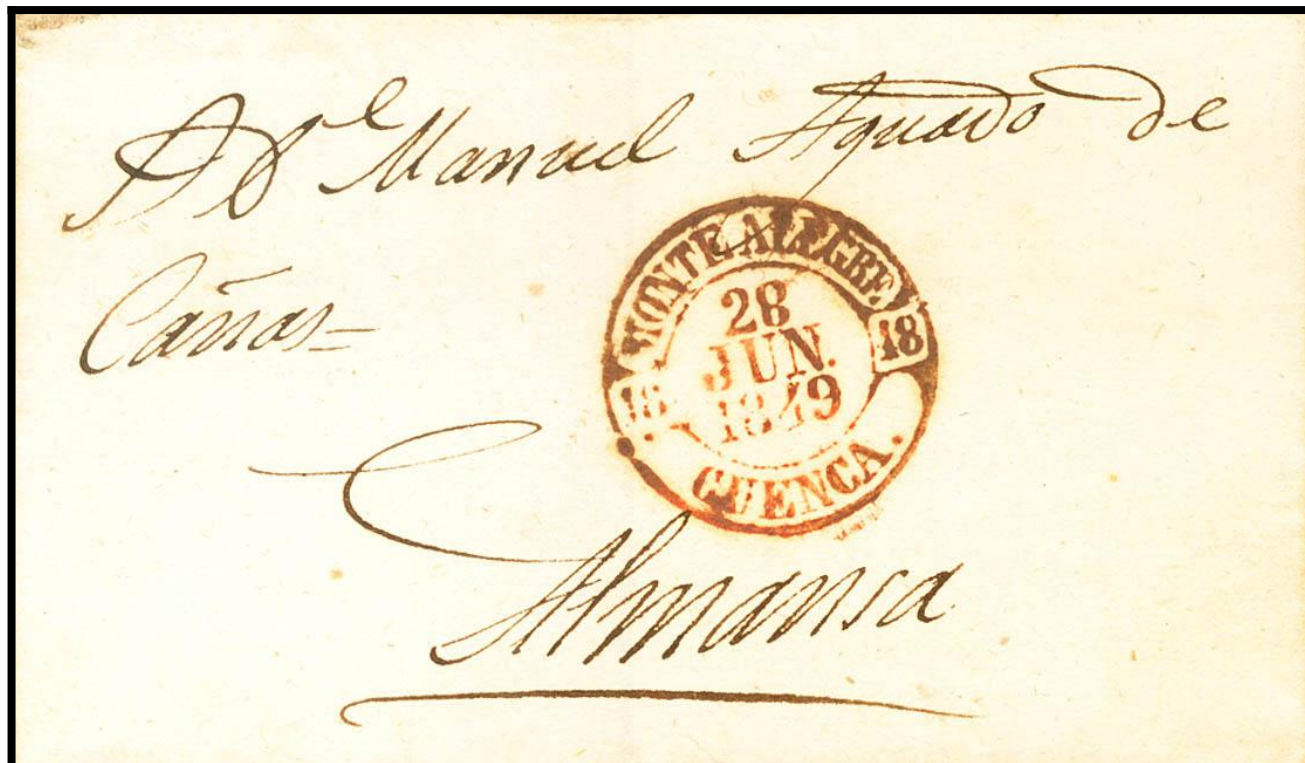 A Dn Manuel Aguado de
Cañas=
MONTE ALEGRE.
18 18
28
JUN.
1849
CUENCA.
Almansa